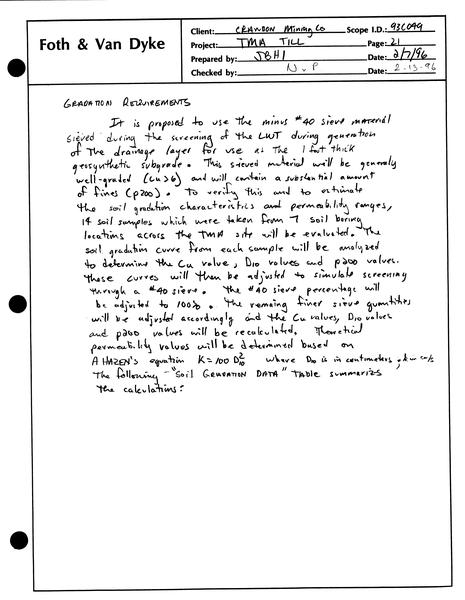 Foth & Van Dyke
Client: CRANDON Mining Co Scope I.D.: 93C049
Project: TMA TILL Page: 21
Prepared by: JBH1 Date: 2/7/96
Checked by: NVP Date: 2-13-96
GRADATION REQUIREMENTS
It is proposed to use the minus #40 sieve material
sieved during the screening of the LWT during generation
of the drainage layer for use as the 1 foot thick
geosynthetic subgrade. This sieved material will be generaly
well-graded (Cu>6) and will contain a substantial amount
of fines (p200). To verify this and to estimate
the soil gradation characteristics and permeability ranges,
14 soil samples which were taken from 7 soil boring
locations across the TMA site will be evaluated. The
soil gradation curve from each sample will be analyzed
to determine the Cu value, D10 values and p200 values.
These curves will then be adjusted to simulate screening
through a #40 sieve. The #40 sieve percentage will
be adjusted to 100%. The remaing finer sieve quantities
will be adjusted accordingly and the Cu values, D10 values
and p200 values will be recalculated. Theoretical
permeability values will be determined based on
A HAZEN's equation K=100 D10² where D10 is in centimeters, k in cm/s
The following "SOIL GRADATION DATA" Table summarizes
the calculations: